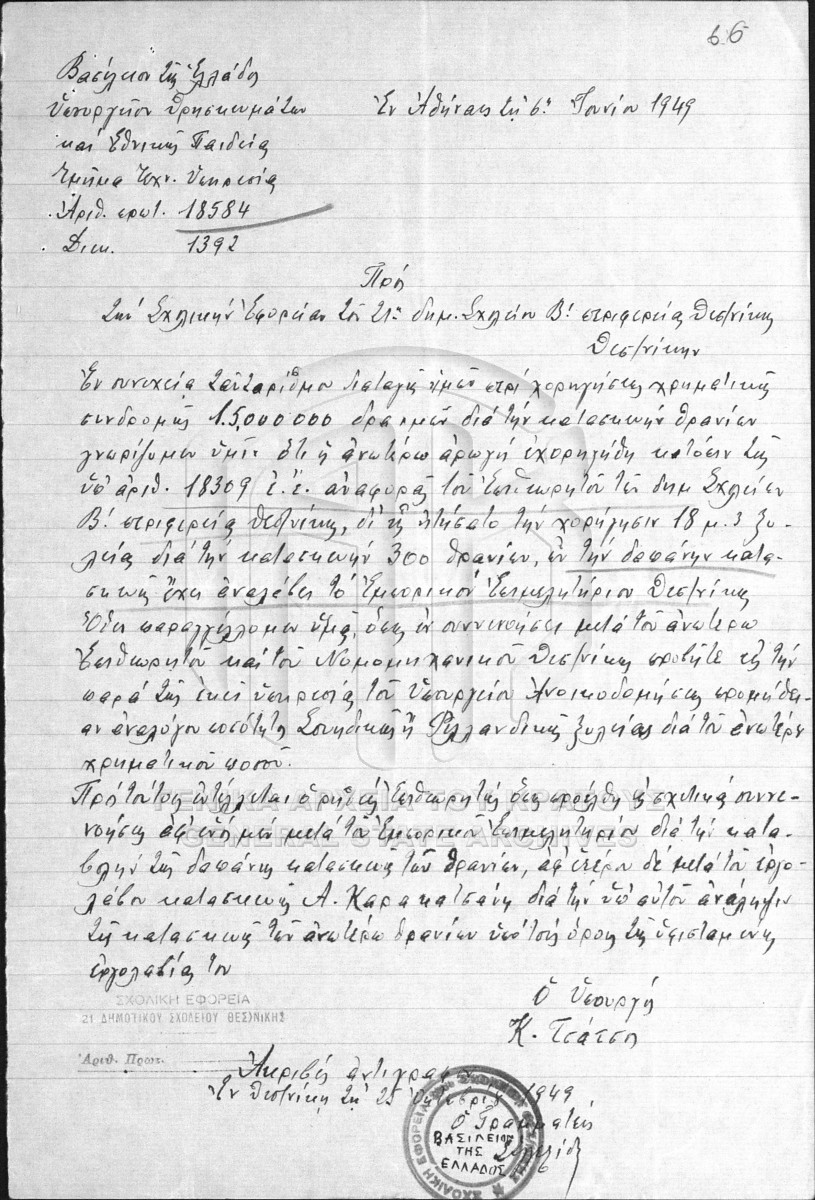 66
Βασίλειον τῆς Ἑλλάδος
Ὑπουργεῖον Θρησκευμάτων
Ἐν Ἀθήναις τῇ 6ῃ Ἰουνίου 1949
καί Ἐθνικῆς Παιδείας
Τμῆμα Τεχν. Ὑπηρεσίας
Ἀριθ. πρωτ. 18584
Διεκ. 1392
Πρός
Τήν Σχολικήν Ἐφορείαν τοῦ 21ου δημ. Σχολείου Β! περιφερείας Θεσ/νίκης
Θεσ/νίκην
Ἐν συνεχείᾳ ταὐταρίθμου διαταγῆς ἡμῶν περί χορηγήσεως χρηματικῆς
συνδρομῆς 15.000.000 δραχμῶν διά τήν κατασκευήν θρανίων
γνωρίζομεν ὑμῖν ὅτι ἡ ἀνωτέρω ἀρωγή ἐχορηγήθη κατόπιν τῆς
ὑπ' ἀριθ. 18309 ἐ.ἔ. ἀναφορᾶς τοῦ Ἐπιθεωρητοῦ τῶν δημ Σχολείων
Β! περιφερείας Θεσ/νίκης, δι' ἧς ᾐτήσατο τήν χορήγησιν 18 μ.3 ξυ-
λείας διά τήν κατασκευήν 300 θρανίων, ὧν τήν δαπάνην κατα-
σκευῆς ἔχει ἀναλάβει τό Ἐμπορικόν Ἐπιμελητήριον Θεσ/νίκης
Ὅθεν παραγγέλλομεν ὑμᾶς, ὅπως ἐν συνεννοήσει μετά τοῦ ἀνωτέρω
Ἐπιθεωρητοῦ καί τοῦ Νομομηχανικοῦ Θεσ/νίκης προβῆτε εἰς τήν
παρά τῆς ἐκεῖ ὑπηρεσίας τοῦ Ὑπουργείου Ἀνοικοδομήσεως προμήθει-
αν ἀναλόγου ποσότητος Σουηδικῆς ἤ Φιλλανδικῆς ξυλείας διά τοῦ ἀνωτέρω
χρηματικοῦ ποσοῦ.
Πρός τοῦτο ἐντέλλεται ὁ ρηθείς Ἐπιθεωρητής ὅπως προέλθῃ εἰς σχετικάς συνεν-
νοήσεις ἀφ' ἑνός μέν μετά τοῦ Ἐμπορικοῦ Ἐπιμελητηρίου διά τήν κατα-
βολήν τῆς δαπάνης κατασκευῆς τῶν θρανίων, ἀφ' ἑτέρου δέ μετά τοῦ ἐργο-
λάβου κατασκευῆς Α. Καρακατσάνη διά τήν ὑπ' αὐτοῦ ἀνάληψιν
τῆς κατασκευῆς τῶν ἀνωτέρω θρανίων ὑπό τούς ὅρους τῆς ὑφισταμένης
ἐργολαβίας του
Ὁ Ὑπουργός
Κ. Τσάτσος
ΣΧΟΛΙΚΗ ΕΦΟΡΕΙΑ
21 ΔΗΜΟΤΙΚΟΥ ΣΧΟΛΕΙΟΥ ΘΕΣ)ΝΙΚΗΣ
Ἀριθ. Πρωτ.
Ἀκριβές ἀντίγραφον
Ἐν Θεσ/νίκῃ τῇ 25 1949
Ὁ Γραμματεύς
ΒΑΣΙΛΕΙΟΝ
ΤΗΣ
ΕΛΛΑΔΟΣ
ΓΕΝΙΚΑ ΑΡΧΕΙΑ ΤΟΥ ΚΡΑΤΟΥΣ
GENERAL STATE ARCHIVES